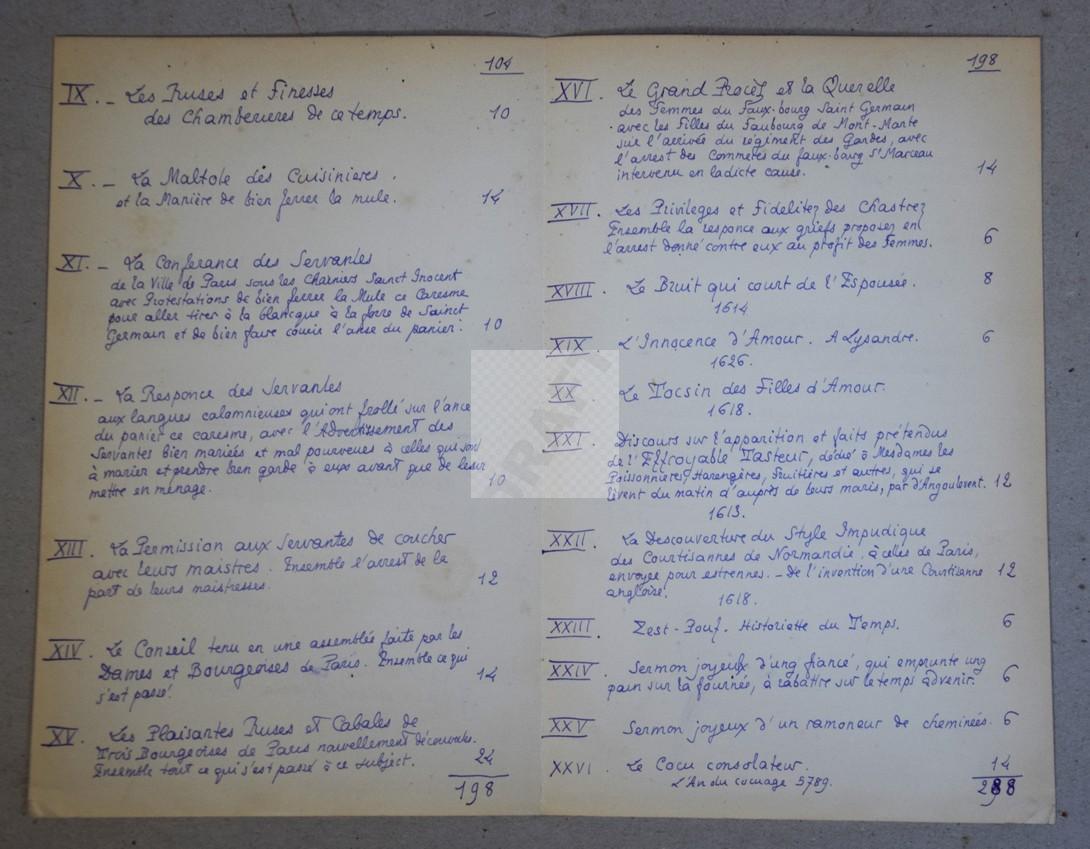 104
IX. – Les Ruses et Finesses
des Chamberieres de ce temps. 10
X. – La Maltote des Cuisinieres.
et la Manière de bien ferrer la mule. 14
XI. – La Conferance des Servantes
de la Ville de Paris sous les Charniers Sainct Inocent
avec Protestations de bien ferrer la Mule ce Caresme
pour aller tirer à la blancque à la foire de Sainct
Germain et de bien faire courir l'anse du panier. 10
XII. – La Responce des Servantes
aux langues calomnieuses qui ont frollé sur l'ance
du panier ce caresme, avec l'Advertissement des
Servantes bien mariées et mal pourveues à celles qui sont
à marier et prendre bien garde à eux avant que de leur
mettre en ménage. 10
XIII. La Permission aux Servantes de coucher
avec leurs maistres. Ensemble l'arrest de la
part de leurs maistresses. 12
XIV. Le Conseil tenu en une assemblée faite par les
Dames et Bourgeoises de Paris. Ensemble ce qui
s'est passé. 14
XV. Les Plaisantes Ruses et Cabales de
Trois Bourgeoises de Paris nouvellement découvertes.
Ensemble tout ce qui s'est passé à ce subject. 24
198
198
XVI. Le Grand Procèz et la Querelle
des Femmes du Faux-bourg Saint Germain
avec les Filles du Faubourg de Mont-Marte
sur l'arrivée du régiment des Gardes, avec
l'arrest des Commeres du faux-bourg St Marceau
intervenu en ladicte cause. 14
XVII. Les Privileges et Fidelitez des Chastrez
Ensemble la responce aux griefs proposez en
l'arrest donné contre eux au profit des Femmes. 6
XVIII. Le Bruit qui court de l'Espousée. 8
1614
XIX. L'Innocence d'Amour. A Lysandre. 6
1626.
XX. Le Tocsin des Filles d'Amour.
1618.
XXI. Discours sur l'apparition et faits prétendus
de l'Effroyable Tasteur, dédié à Mesdames les
Poissonnières, Harengères, Fruitières et autres, qui se
lèvent du matin d'auprès de leurs maris, par d'Angoulevent. 12
1613.
XXII. La Descouverture du Style Impudique
des Courtisannes de Normandie, à celles de Paris,
envoyée pour estrennes. – De l'invention d'une Courtisanne 12
angloise. 1618.
XXIII. Zest-Pouf. Historiette du Temps. 6
XXIV. Sermon joyeulx d'ung fiancé, qui emprunte ung
pain sur la fournée, à rabattre sur le temps advenir. 6
XXV. Sermon joyeux d'un ramoneur de cheminées. 6
XXVI. Le Cocu consolateur. 14
L'An du cocuage 5789.
288